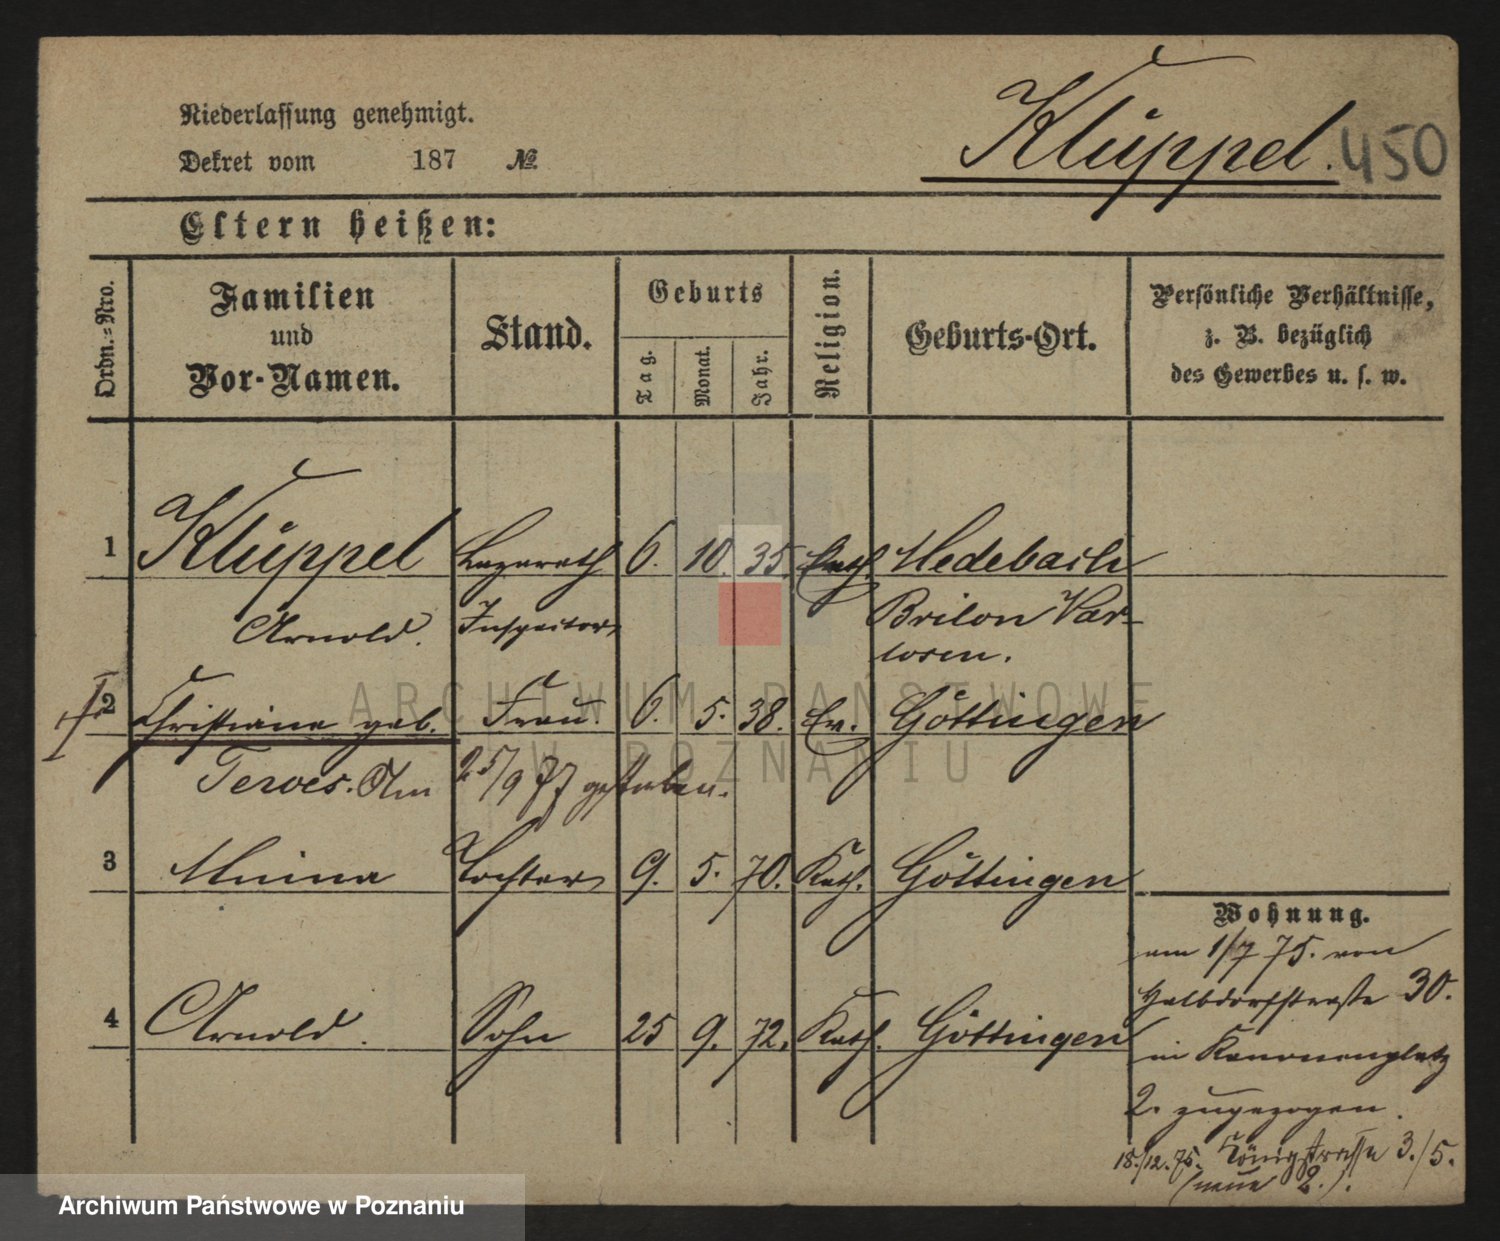 Niederlassung genehmigt.
Dekret vom 187 №
Klüppel. 450
Eltern heißen:
Ordn.-Nro.
Familien und Vor-Namen.
Stand.
Geburts
Tag. Monat. Jahr.
Religion.
Geburts-Ort.
Persönliche Verhältnisse,
z. B. bezüglich
des Gewerbes u. s. w.
1 Klüppel Lazareth 6. 10. 35. Kath. Medebach
Arnold. Inspector Brilon
2 Christiane geb. Frau. 6. 5. 38. Ev. Göttingen
Am 25/9 77 gestorben.
3 Minna Tochter 9. 5. 70. Kath. Göttingen
4 Arnold. Sohn 25 9. 72. Kath. Göttingen
Wohnung.
am 1/7 75. von
Halbdorfstraße 30.
in Kanonenplatz
2. zugezogen.
18./12. 75. Königstrasse 3./5.
(neue 2.).
ARCHIWUM PAŃSTWOWE
W POZNANIU
Archiwum Państwowe w Poznaniu